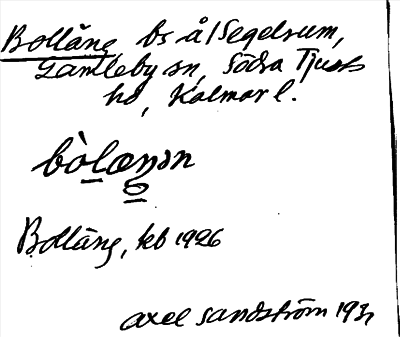 Bolläng, bs å/Segelrum,
Gamleby sn, Södra Tjusts
hd, Kalmar l.
bòlæŋən
Bolläng, kb 1926
Axel Sandström 193